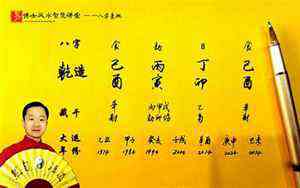 博士风水智慧讲堂——八字案例
八字 食 劫 日 食
乾造 己酉 丙寅 丁卯 己酉
藏干 辛财 甲丙戊 乙 辛财
大运 乙丑 甲子 癸亥 壬戌 辛酉 庚申 己未
年 1974 1984 1994 2004 2014 2024 2034